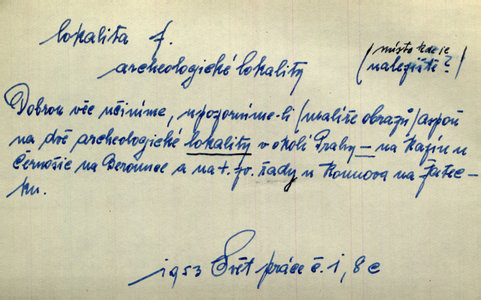 lokalita f.
(místo kde je
archeologické lokality
naleziště?)
Dobrou věc učiníme, upozorníme-li (malíře obrazů) aspoň
na dvě archeologické lokality v okolí Prahy – na Kazín u
Černošic na Berounce a na t. zv. řady u Kounova na Žatec-
ku.
1953 Svět práce č. 1, 8 c